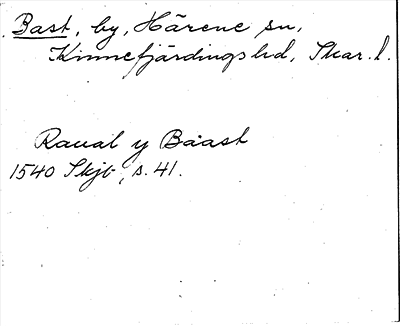 Bast, by, Härene sn,
Kinnefjärdings hd, Skar. l.
Raual y Baast
1540 Skjb, s. 41.